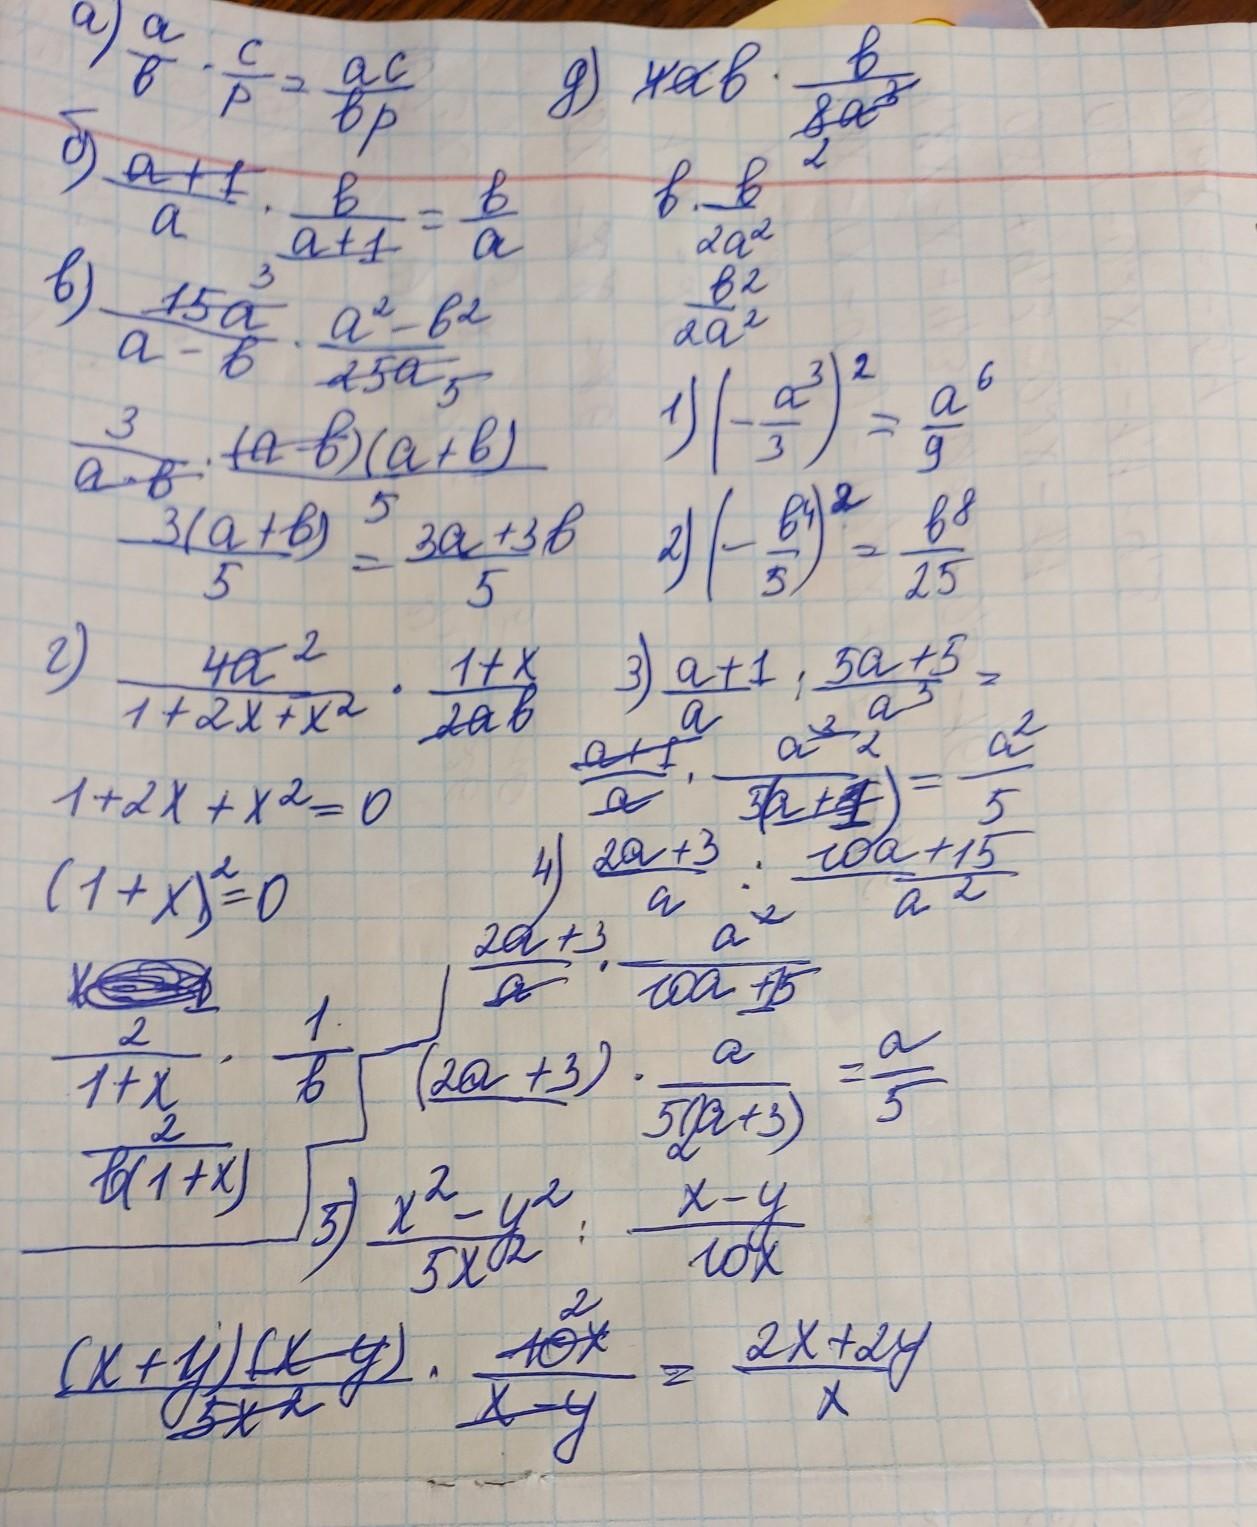 а) a/b · c/p = ac/bp
б) a+1/a · b/a+1 = b/a
в) 15a/a-b · a²-b²/25a
3
5
3/a-b · (a-b)(a+b)/5
3(a+b)/5 = 3a+3b/5
г) 4a²/1+2x+x² · 1+x/2ab
1+2x+x²=0
(1+x)²=0
2/1+x · 1/b
2/b(1+x)
д) 4ab · b/8a³
2
b · b/2a²
b²/2a²
1) (-a³/3)² = a⁶/9
2) (-b⁴/5)² = b⁸/25
3) a+1/a : 5a+5/a³ =
a+1/a · a³ 2/5(a+1) = a²/5
4) 2a+3/a : 10a+15/a²
2a+3/a · a²/10a+15
(2a+3) · a/5(2a+3) = a/5
5) x²-y²/5x² : x-y/10x
(x+y)(x-y)/5x² · 10x/x-y = 2x+2y/x
2